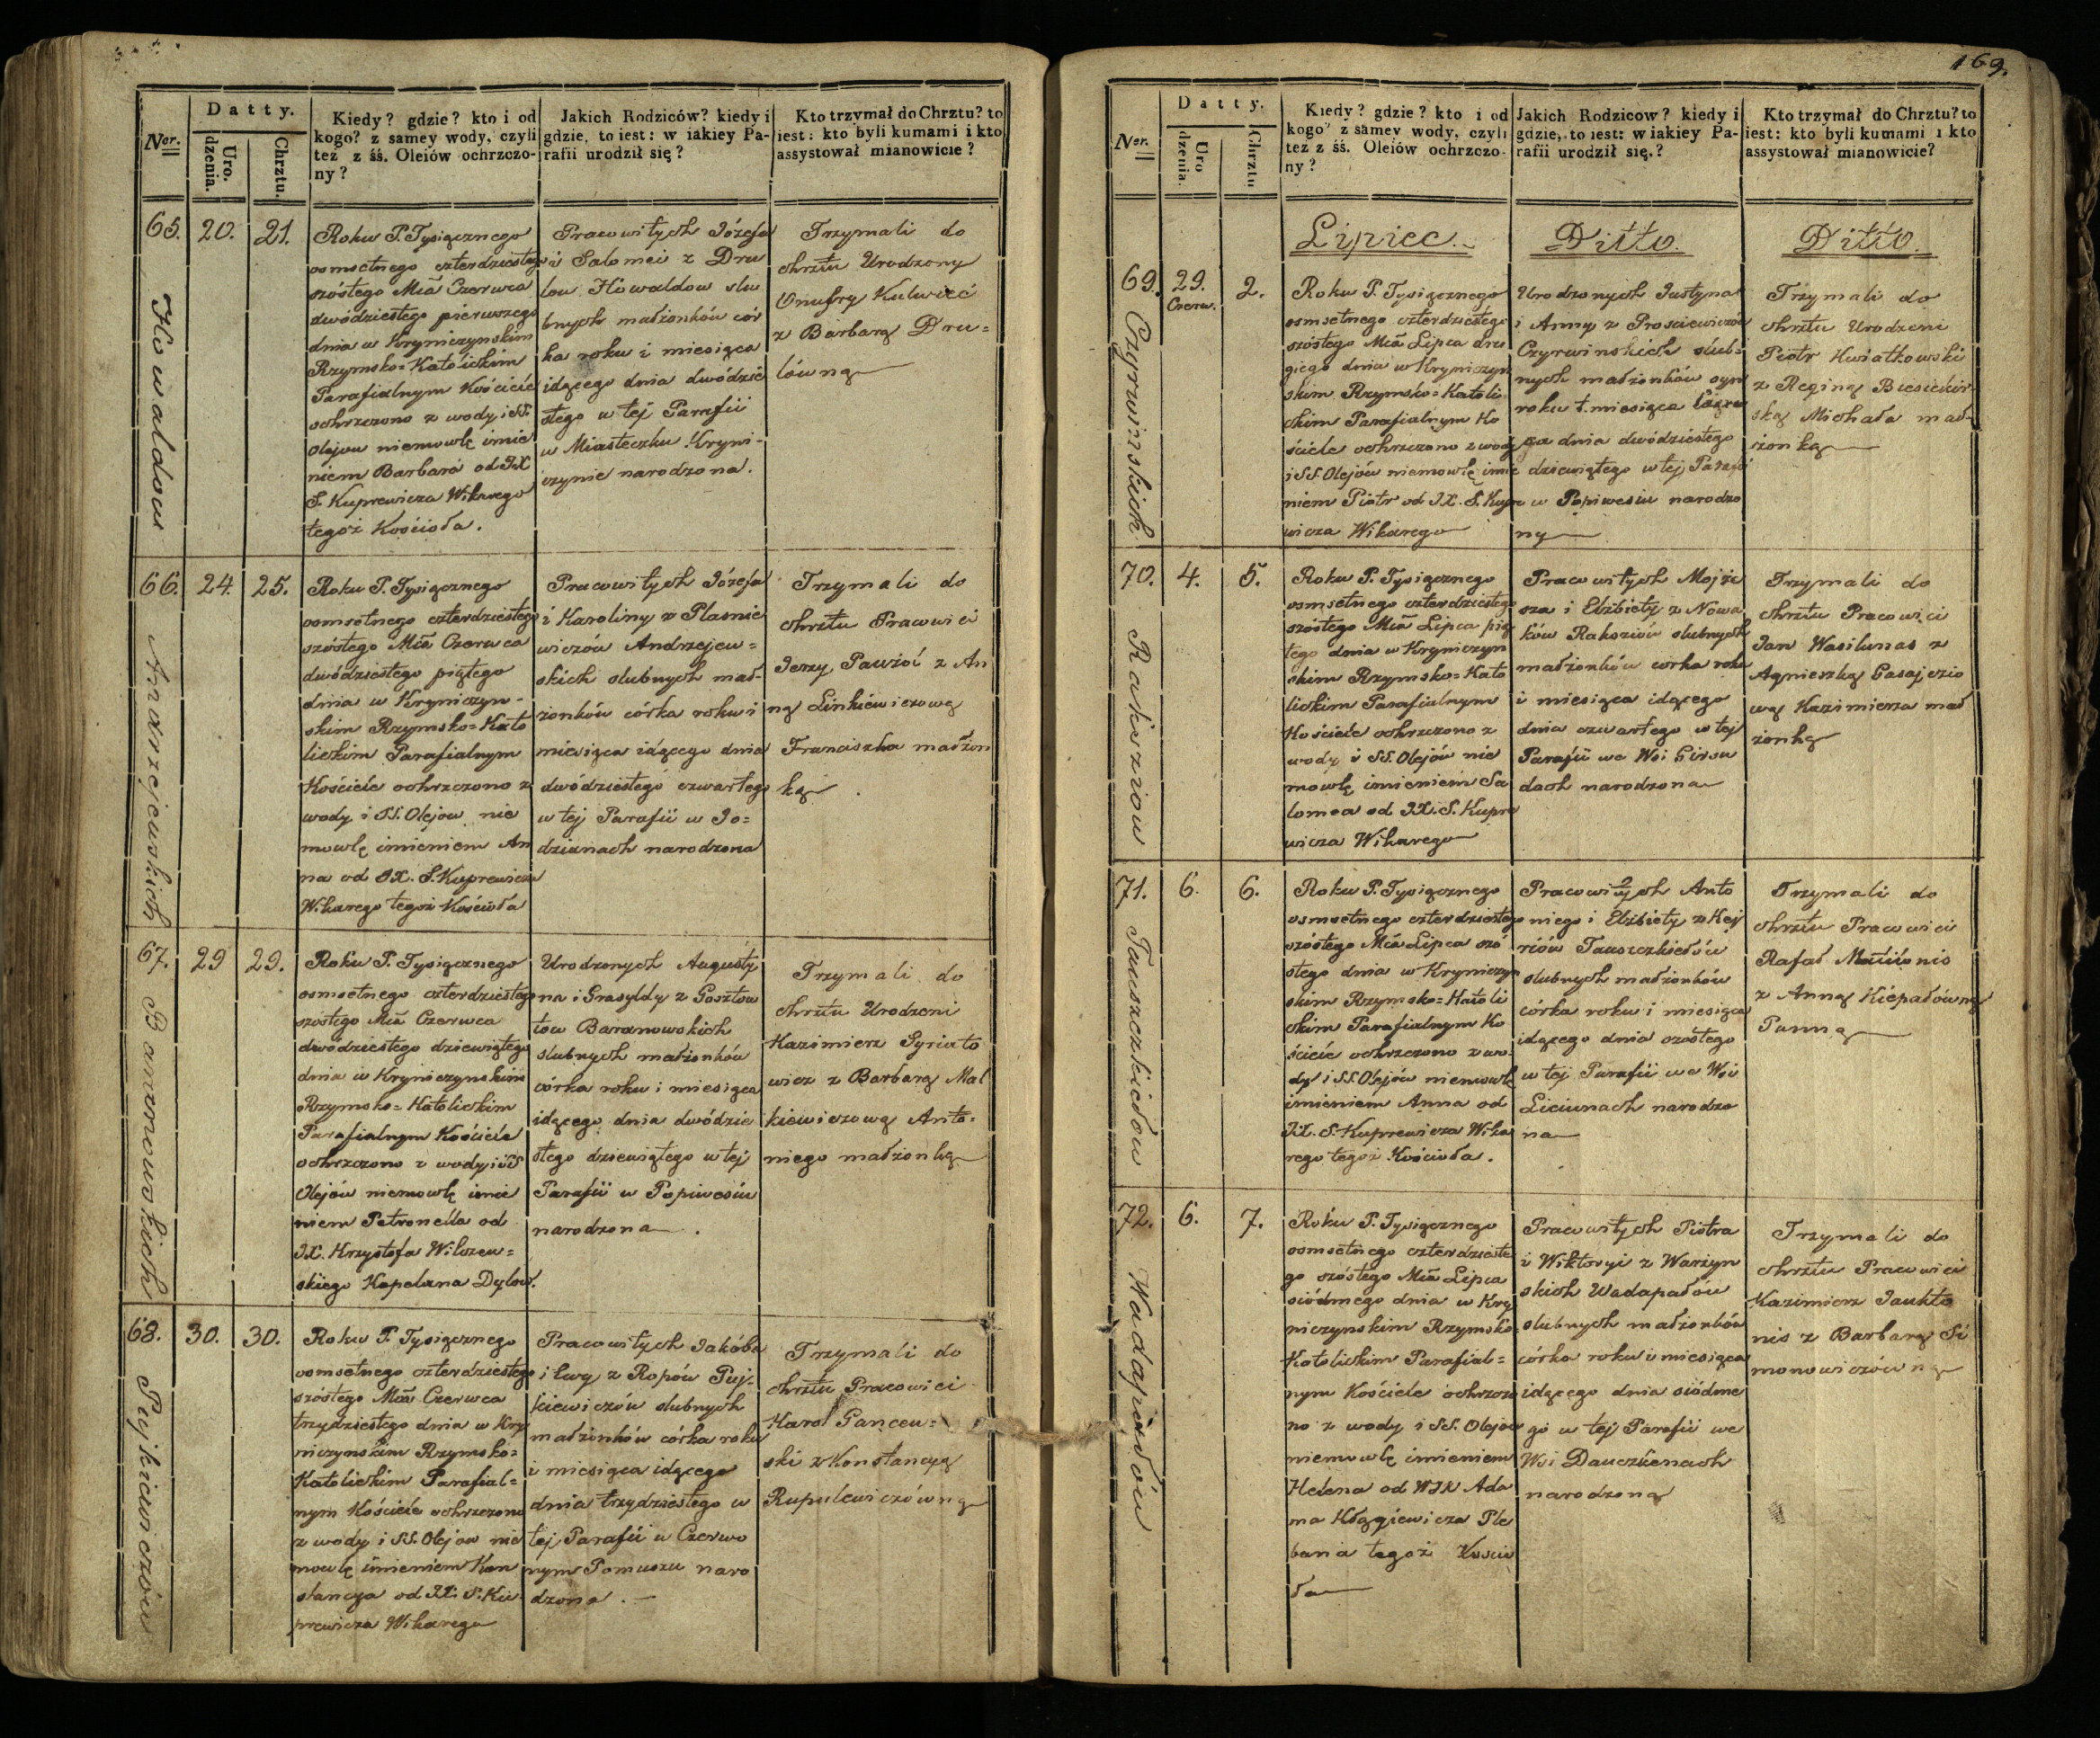 169.
Datty.
Ner.
Uro.
dzenia.
Chrztu.
Kiedy? gdzie? kto i od
kogo? z samey wody, czyli
też z śś. Oleiów ochrzczo-
ny?
Jakich Rodziców? kiedy i
gdzie, to iest: w iakiey Pa-
rafii urodził się?
Kto trzymał do Chrztu? to
iest: kto byli kumami i kto
assystował mianowicie?
65.
20.
21.
Howaldow
Roku P. Tysiącznego
osmsetnego czterdziestego
szóstego Mca Czerwca
dwódziestego pierwszego
dnia w Kryniczynskim
Rzymsko=Katolickim
Parafialnym Kościele
ochrzczono z wody i SS.
Olejow niemowlę imie
niem Barbara od JX
S. Kuprewicza Wikarego
tegoż Kościoła.
Pracowitych Józefa
i Salomei z Dru
low Howaldow slu
bnych małżonków cór
ka roku i miesiąca
idącego dnia dwódzie
stego w tej Parafii
w Miasteczku Kryni-
czynie narodzona.
Trzymali do
chrztu Urodzony
Onufry Kulwieć
z Barbarą Dru=
lówną
66.
24.
25.
Andrzejewskich
Roku P. Tysiącznego
osmsetnego czterdziestego
szóstego Mca Czerwca
dwódziestego piątego
dnia w Kryniczyn-
skim Rzymsko=Kato
lickim Parafialnym
Kościele ochrzczono z
wody i SS. Olejow nie
mowlę imieniem An
na od JX. S. Kuprewicza
Wikarego tegoż Kościoła
Pracowitych Józefa
i Karoliny z Plasnie
wiczów Andrzejew=
skich slubnych mał-
żonków córka roku i
miesiąca idącego dnia
dwódziestego czwartego
w tej Parafii w Jo=
dzianach narodzona
Trzymali do
chrztu Pracowici
Jerzy Pawżol z An
ną Linkiewiczową
Franciszka małżon
ką
67.
29
29.
Baranowskich
Roku P. Tysiącznego
osmsetnego czterdziestego
szostego Mca Czerwca
dwódziestego dziewiątego
dnia w Kryniczynskim
Rzymsko=Katolickim
Parafialnym Kościele
ochrzczono z wody i SS
Olejów niemowlę imie
niem Petronella od
JX. Krzysztofa Wilczew=
skiego Kapelana Dylow.
Urodzonych Augusty
na i Grasyldy z Gosztow
tow Baranowskich
slubnych małżonków
córka roku i miesiąca
idącego dnia dwódzie
stego dziewiątego w tej
Parafii w Popiwesiu
narodzona.
Trzymali do
chrztu Urodzeni
Kazimierz Syriato
wicz z Barbarą Mal
kiewiczową Anto=
niego małżonką
68.
30.
30.
Pujkiewiczów
Roku P. Tysiącznego
osmsetnego czterdziestego
szóstego Mca Czerwca
trzydziestego dnia w Kry
niczynskim Rzymsko=
Katolickim Parafial=
nym Kościele ochrzczono
z wody i SS. Olejow nie
mowlę imieniem Kon
stancya od JX. S. Ku
prewicza Wikarego
Pracowitych Jakóba
i Ewy z Ropów Puj-
kiewiczów slubnych
małżonków córka roku
i miesiąca idącego
dnia trzydziestego w
tej Parafii w Czerwo
nym Pomuszu naro
dzona.
Trzymali do
chrztu Pracowici
Karol Gancew=
ski z Konstancyą
Rupulewiczówną
Datty.
Ner.
Uro
dzenia.
Chrztu
Kiedy? gdzie? kto i od
kogo? z samey wody, czyli
też z śś. Oleiów ochrzczo-
ny?
Jakich Rodzicow? kiedy i
gdzie, to iest: w iakiey Pa-
rafii urodził się.?
Kto trzymał do Chrztu? to
iest: kto byli kumami i kto
assystował mianowicie?
Lipiec.
Ditto.
Ditto.
69.
29.
Czerw.
2.
Czyrwinskich
Roku P. Tysiącznego
osmsetnego czterdziestego
szóstego Mca Lipca dru
giego dnia w Kryniczyn
skim Rzymsko=Katoli
ckim Parafialnym Ko
ściele ochrzczono z wody
i SS Olejów niemowlę imie
niem Piotr od JX. S. Kupre
wicza Wikarego
Urodzonych Justyna
i Anny z Prosciewiczów
Czyrwinskich slub=
nych małżonków syn
roku t. miesiąca Czerw
ca dnia dwódziestego
dziewiątego w tej Parafii
w Popiwesiu narodzo
ny
Trzymali do
chrztu Urodzeni
Piotr Kwiatkowski
z Reginą Biesiekir-
ską Michała mał-
żonką
70.
4.
5.
Raksziow
Roku P. Tysiącznego
osmsetnego czterdziestego
szóstego Mca Lipca pią
tego dnia w Kryniczyn
skim Rzymsko=Kato
lickim Parafialnym
Kościele ochrzczono z
wody i SS. Olejów nie
mowlę imieniem Sa
lomea od JX. S. Kupre
wicza Wikarego
Pracowitych Mojże
sza i Elżbiety z Nowa
ków Raksziów slubnych
małżonków córka roku
i miesiąca idącego
dnia czwartego w tej
Parafii we Wsi Girsu
dach narodzona
Trzymali do
chrztu Pracowici
Jan Wasilunas z
Agnieszką Gasajczio
wą Kazimierza mał
żonką
71.
6.
6.
Tauszczkiełów
Roku P. Tysiącznego
osmsetnego czterdziestego
szóstego Mca Lipca szó
stego dnia w Kryniczyn
skim Rzymsko=Katoli
ckim Parafialnym Ko
ściele ochrzczono z wo-
dy i SS. Olejów niemowlę
imieniem Anna od
JX. S. Kuprewicza Wika
rego tegoż Kościoła.
Pracowitych Anto
niego i Elżbiety z Kej
riów Tauszczkiełów
slubnych małżonków
córka roku i miesiąca
idącego dnia szóstego
w tej Parafii we Wsi
Liciunach narodzo
na
Trzymali do
chrztu Pracowici
Rafał Matulonis
z Anną Kiepałówną
Panną
72.
6.
7.
Wadapałów
Roku P. Tysiącznego
osmsetnego czterdzieste
go szóstego Mca Lipca
siódmego dnia w Kry
niczynskim Rzymsko=
Katolickim Parafial=
nym Kościele ochrzczo
no z wody i SS. Olejow
niemowlę imieniem
Helena od WJX Ada
ma Kłągiewicza Ple
bana tegoż Koscio
ła
Pracowitych Piotra
i Wiktoryi z Warzyn
skich Wadapałów
slubnych małżonków
córka roku i miesiąca
idącego dnia siódme
go w tej Parafii we
Wsi Dauczkienach
narodzona
Trzymali do
chrztu Pracowici
Kazimierz Jaukto
nis z Barbarą Si
monowiczówną